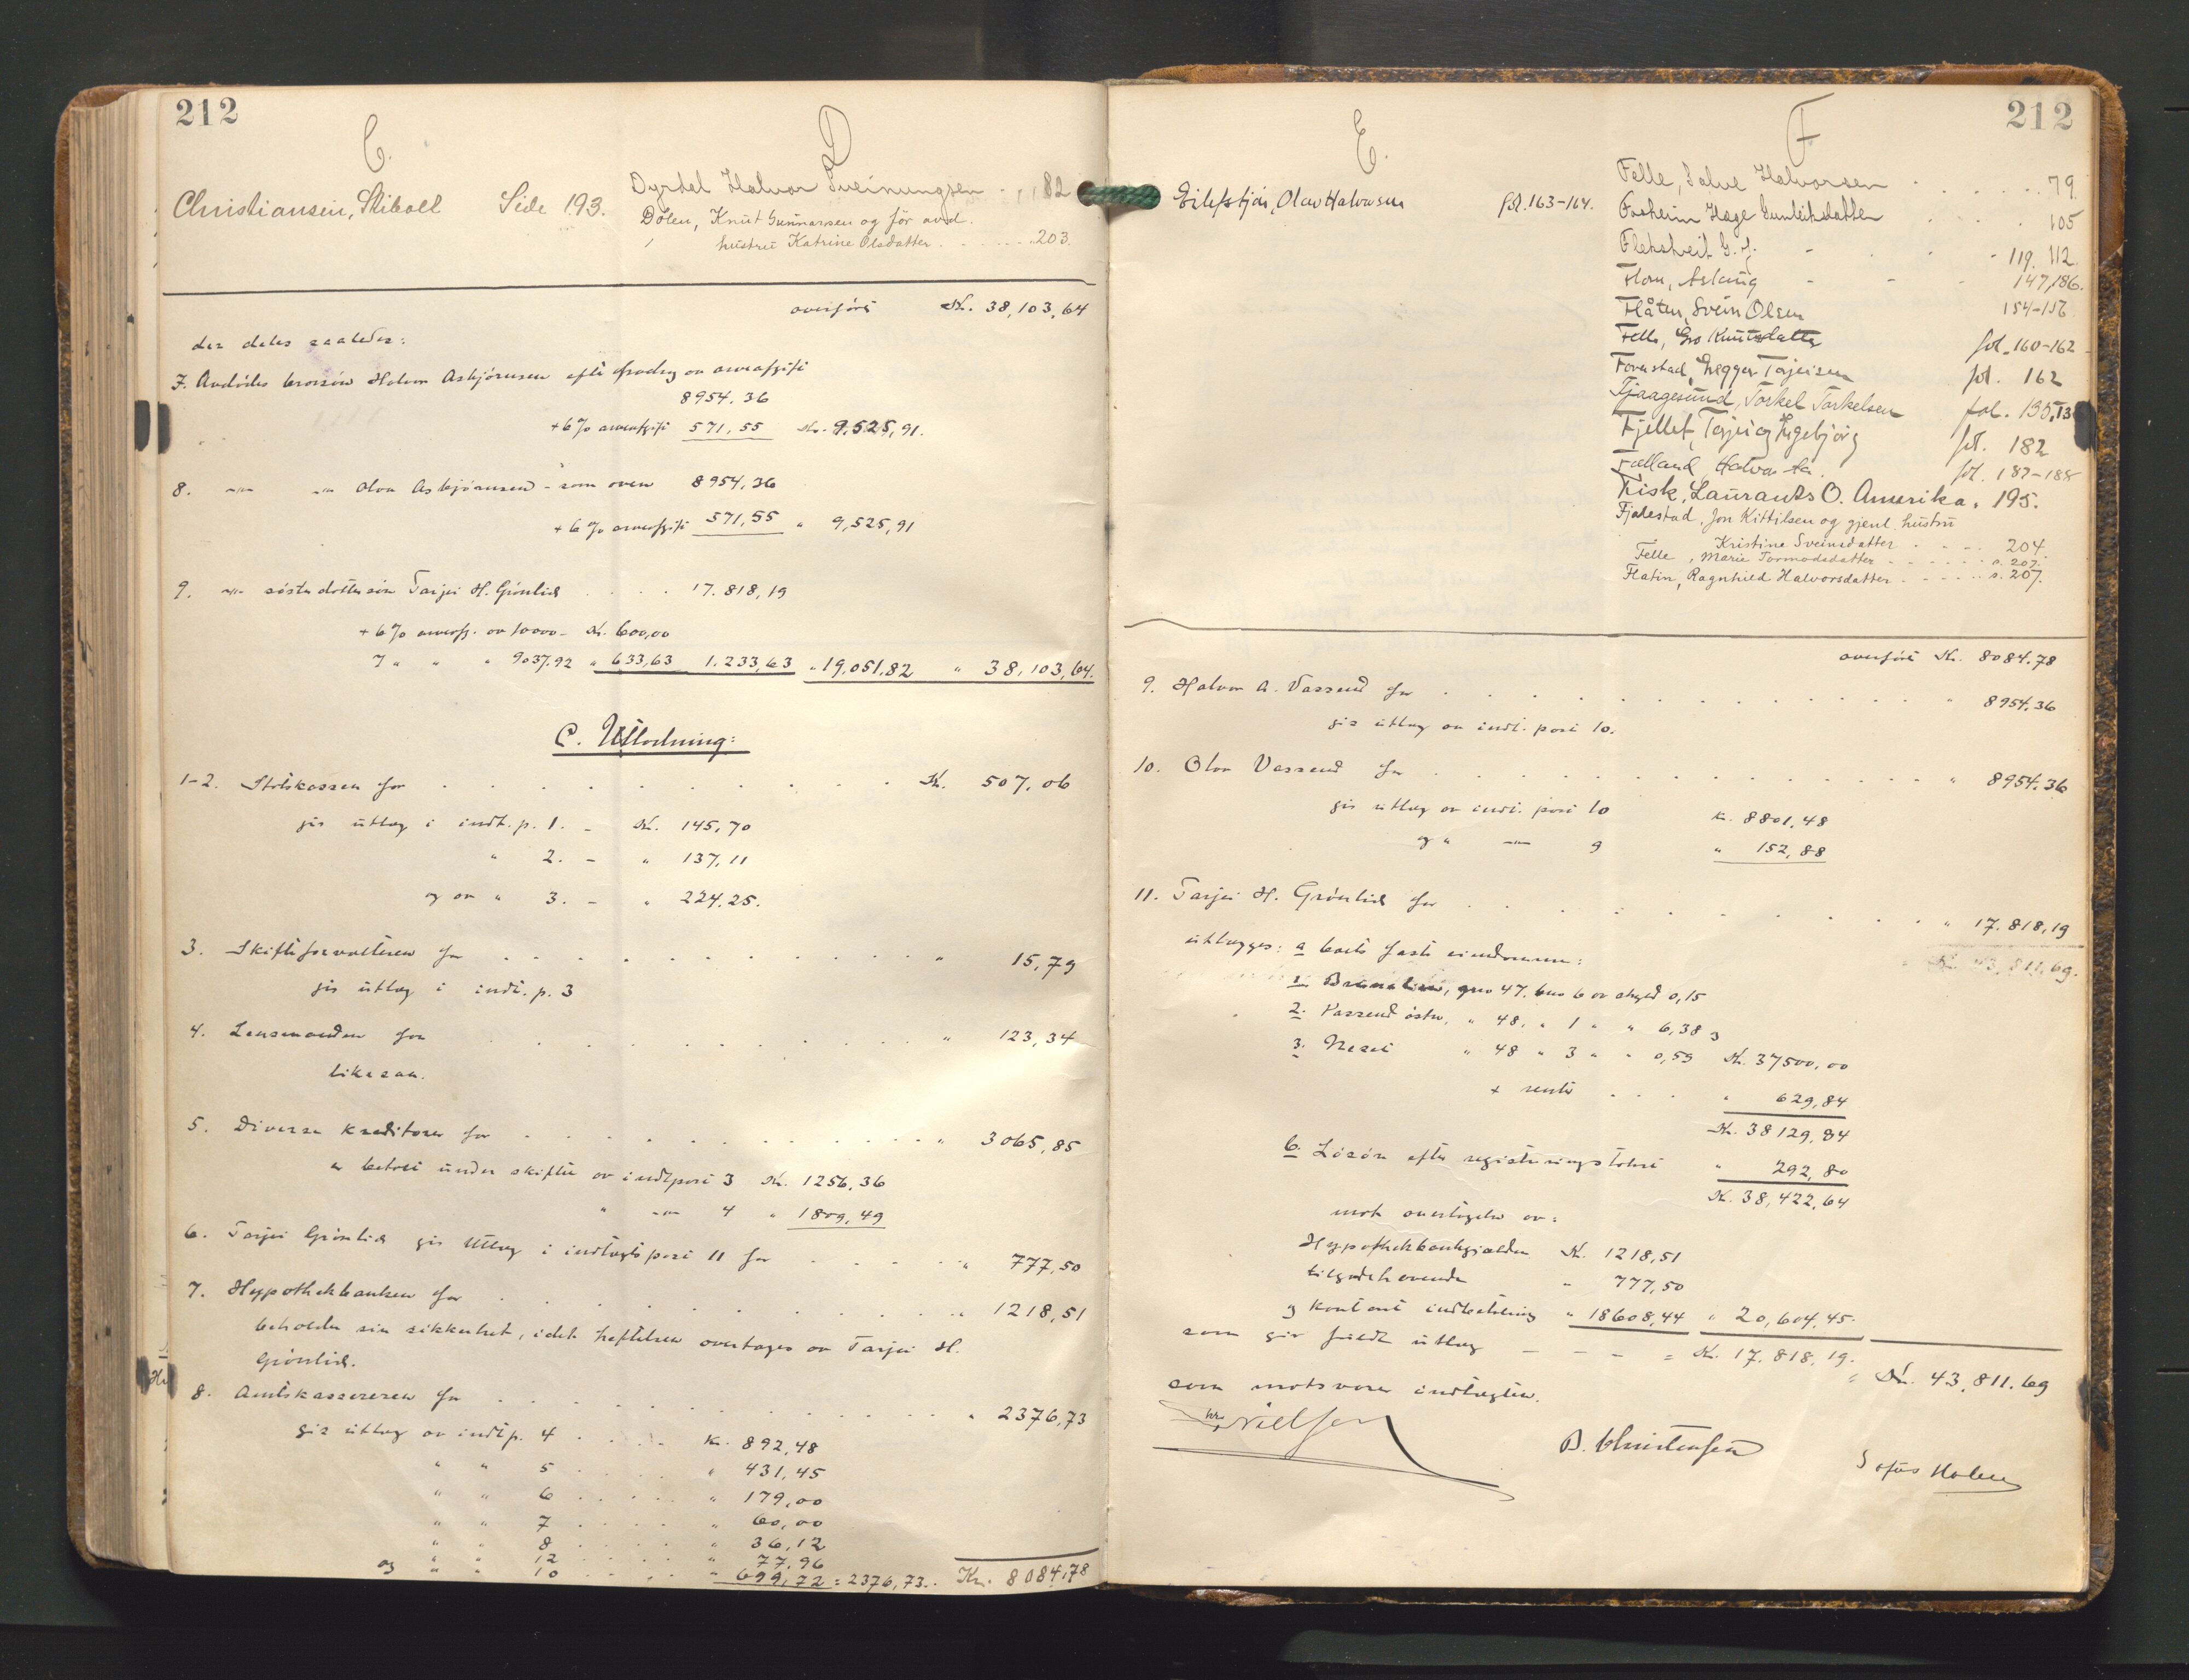 212
C.
D
Christiansen, Skiboll Side 193.
Dyrdal Halvor Sveinungsen - . , 182
Dølen, Knut Gunnarsen og før avd.
hustru Katrine Olsdatter . . . . . 203.
overført Kr. 38,103,64
der deles saaledes:
7. Avdødes brorsøn Halvor Asbjørnsen efter fradrag av arveafgift
8954.36
+ 6% arveafgift 571,55 Kr. 9,525,91.
8. -"- -"- Olav Asbjørnsen - som oven 8954,36
+ 6% arveafgift 571,55 " 9,525,91
9. -"- søsterdattersøn Tarjei H. Grønlid . . . . 17.818,19
+ 6% arveafg. av 10000 - Kr. 600,00
7 " " " 9037.92 " 633,63 1.233,63 " 19,051,82 " 38,103,64.
C. Utlodning:
1-2. Statskassen for . . . . . . . . . Kr. 507,06
gis utlæg i indt. p. 1. - Kr. 145,70
" 2. - " 137,11
og av " 3. - " 224.25.
3. Skifteforvalteren for . . . . . . . . . " 15,79
gis utlæg i indt. p. 3
4. Lensmanden for . . . . . . . . . " 123,34
likesaa.
5. Diverse kreditorer for . . . . . . . . . " 3065,85
er betalt under skiftet av indt.post 3 Kr. 1256,36
" -"- 4 " 1809,49
6. Tarjei Grønlid gis utlæg i indtægtspost 11 for . . . . " 777,50
7. Hypothekbanken for . . . . . . . . . " 1218,51
beholder sin sikkerhet, idet heftelsen overtages av Tarjei H.
Grønlid.
8. Amtskassereren for . . . . . . . . . " 2376,73
gis utlæg av indt. p. 4 . . . . Kr. 892,48
" " 5 . . . . " 431,45
" " 6 . . . . " 179,00
" " 7 . . . . " 60,00
" " 8 . . . . " 36,12
" " 12 . . . . " 77,96
og " " 10 . . . . " 699,72 = 2376,73. Kr. 8084,78
212
E.
F.
Eilefstjøn, Olav Halvorsen fol. 163-164.
Felle, Salve Halvorsen . . . . . 79.
Forheim Hæge Gunleiksdatter . . . 105
Flekstveit G. J. - . . - 119. 112.
Flom, Aslaug - - - 147,186.
Flåten, Svein Olsen 154-156.
Felle, Gro Knutsdatter fol. 160-162
Forustad, Tregger Tarjeisen fol. 162
Fjaagesund, Torkel Torkelsen fol. 135,13
Fjellet, Terjei og Ingebjørg fol. 182
Falland, Halvor fol. 187-188
Fisk, Laurants O. Amerika. 195.
Fjalestad, Jon Kittilsen og gjenl. hustru
Kristine Sveinsdatter . . . . 204.
Felle, Marie Tormodsdatter . . . . . s. 207.
Flatin, Ragnhild Halvorsdatter . . . . . s. 207.
overført Kr. 8084.78
9. Halvor A. Vassend for . . . . . . . . . " 8954.36
gis utlæg av indt. post 10.
10. Olav Vassend for . . . . . . . . . " 8954.36
gis utlæg av indt. post 10 kr. 8801,48
og " -"- 9 " 152,88
11. Tarjei H. Grønlid for . . . . . . . . . " 17.818,19
Kr. 43,811,69.
utlægges: a boets faste eiendomme:
1. Brunelien, gno 47. bno 6 av skyld 0,15
2. Vassend østre, " 48. " 1 " " 6,38 og
3. Neset " 48 " 3 " " 0,59 Kr. 37500,00
+ rente . . . " 629,84
Kr. 38129,84
b. Løsøre efter registreringstakst " 292,80
Kr. 38,422,64
mot overtagelse av:
Hypothekbankgjælden Kr. 1218,51
tilgodehavende " 777,50
og kontant indbetaling " 18608,44 " 20,604,45.
som gir fuldt utlæg - - - = Kr. 17.818,19.
" Kr. 43.811.69
som motsvarer indtægten.
Nielsen
B. Christensen
Sofus Holm